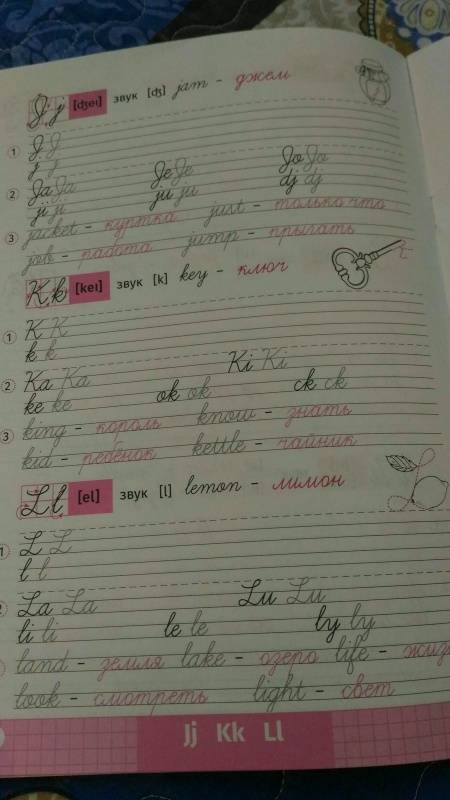 Jj [dʒeɪ] звук [dʒ] jam - джем
1 J J
j j
2 Ja Ja Je Je Jo Jo
ji ji ju ju dj dj
3 jacket - куртка just - только что
job - работа jump - прыгать
Kk [keɪ] звук [k] key - ключ
1 K K
k k
2 Ka Ka Ki Ki
ke ke ok ok ck ck
3 king - король know - знать
kid - ребёнок kettle - чайник
Ll [el] звук [l] lemon - лимон
1 L L
l l
2 La La Lu Lu
li li le le ly ly
land - земля lake - озеро life -
look - смотреть light - свет
Jj Kk Ll